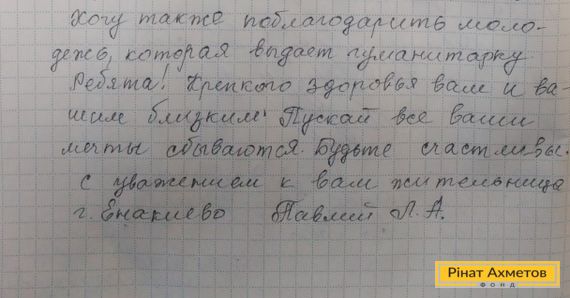 Хочу также поблагодарить моло-
дежь, которая выдает гуманитарку.
Ребята! Крепкого здоровья вам и ва-
шим близким. Пускай все ваши
мечты сбываются. Будьте счастливы.
С уважением к вам жительница
г. Енакиево Павлий Л. А.
Рінат Ахметов
ФОНД